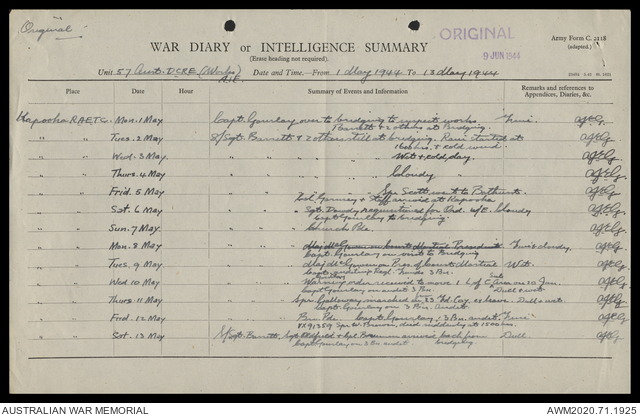 Original
ORIGINAL
9 JUN 1944
Army Form C. 2118
(adapted.)
WAR DIARY or INTELLIGENCE SUMMARY
(Erase heading not required).
Unit 57 Aust. DCRE (Works) AIF. Date and Time—From 1 May 1944 To 13 May 1944
Place Date Hour Summary of Events and Information Remarks and references to
Appendices, Diaries, &c.
Kapooka RAETC. Mon. 1 May Capt. Gourlay over to bridging to inspect works. Fine.
Barrett & 2 others at Bridging.
" " Tues. 2 May S/Sgt. Barrett & 2 others still at bridging. Rain started at
1600hrs. & cold wind.
" " Wed. 3 May " " " " Wet & cold day.
" " Thurs. 4 May " " " " Cloudy
" " Frid. 5 May " " " Scott went to
& Staff arrived at Kapooka
" " Sat. 6 May " " Sgt. for Ord. Cloudy
Capt Gourlay to bridging.
" " Sun. 7 May " " Church Pde.
" " Mon. 8 May Maj. McGowan on Court Martial President Fine cloudy
Capt. Gourlay on visit to Bridging
" " Tues. 9 May Maj. McGowan Pres. of Court Martial Wet.
Capt. Gourlay auditing Regl. Funds 3 Bn.
" " Wed 10 May Warning order received to move 1 L of C Area on 20 Jun.
Capt Gourlay on audit 3 Bn Dull & wet.
" " Thurs 11 May Spr. Galloway marched in 23 Fd. Coy. ex leave. Dull & wet.
Capt. Gourlay on 3 Bn. Audit.
" " Frid. 12 May Capt Gourlay, 3 Bn. audit. Fine
Spr. W. died suddenly at 1500hrs.
" " Sat. 13 May S/Sgt. Barrett, Sgt Oldfield & Spl. arrived back from Dull.
Capt Gourlay on 3 Bn audit bridging.
AUSTRALIAN WAR MEMORIAL
AWM2020.71.1925